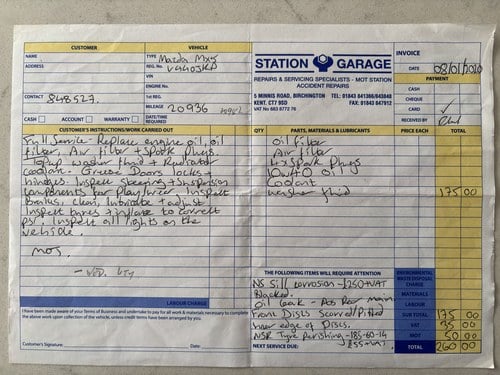 CUSTOMER
NAME
ADDRESS
CONTACT 848527.
CASH ACCOUNT WARRANTY
VEHICLE
TYPE Mazda Mx5
REG. No.
VIN
ENGINE No.
1st REG.
MILEAGE 20936
DATE/TIME REQUIRED
STATION GARAGE
REPAIRS & SERVICING SPECIALISTS - MOT STATION
ACCIDENT REPAIRS
5 MINNIS ROAD, BIRCHINGTON
KENT. CT7 9SD
TEL: 01843 841366/843848
FAX: 01843 847912
INVOICE
DATE 08/01/2020
PAYMENT
CASH
CHEQUE
CARD
RECEIVED BY
CUSTOMER'S INSTRUCTIONS/WORK CARRIED OUT
Full Service - Replace engine oil, oil
filter, Air filter + Spark plugs.
Top up washer fluid + Radiator
coolant. Grease Doors locks +
hinges. Inspect steering + Suspension
components for play/wear. Inspect
Brakes, clean, lubricate + adjust.
Inspect tyres + inflate to correct
psi. Inspect all lights on the
vehicle.
MOT
LABOUR CHARGE
I have been made aware of your Terms of Business and undertake to pay for all work & materials necessary to complete
the above work upon collection of the vehicle, unless credit terms have been arranged by you.
Customer's Signature: Date:
QTY PARTS, MATERIALS & LUBRICANTS TOTAL
Oil filter
Air filter
4x Spark plugs
10w40 oil
Coolant
washer fluid 175 00
THE FOLLOWING ITEMS WILL REQUIRE ATTENTION
NS Sill corrosion - £250+VAT
Blocked.
Oil leak -
Front Discs Scored/Pitted
inner edge of Discs.
NSR Tyre Perishing - 185-60-14
£55+VAT
NEXT SERVICE DUE:
ENVIRONMENTAL WASTE DISPOSAL CHARGE
MATERIALS
LABOUR
SUB TOTAL 175 00
VAT 35 00
MOT 50 00
TOTAL 260 00